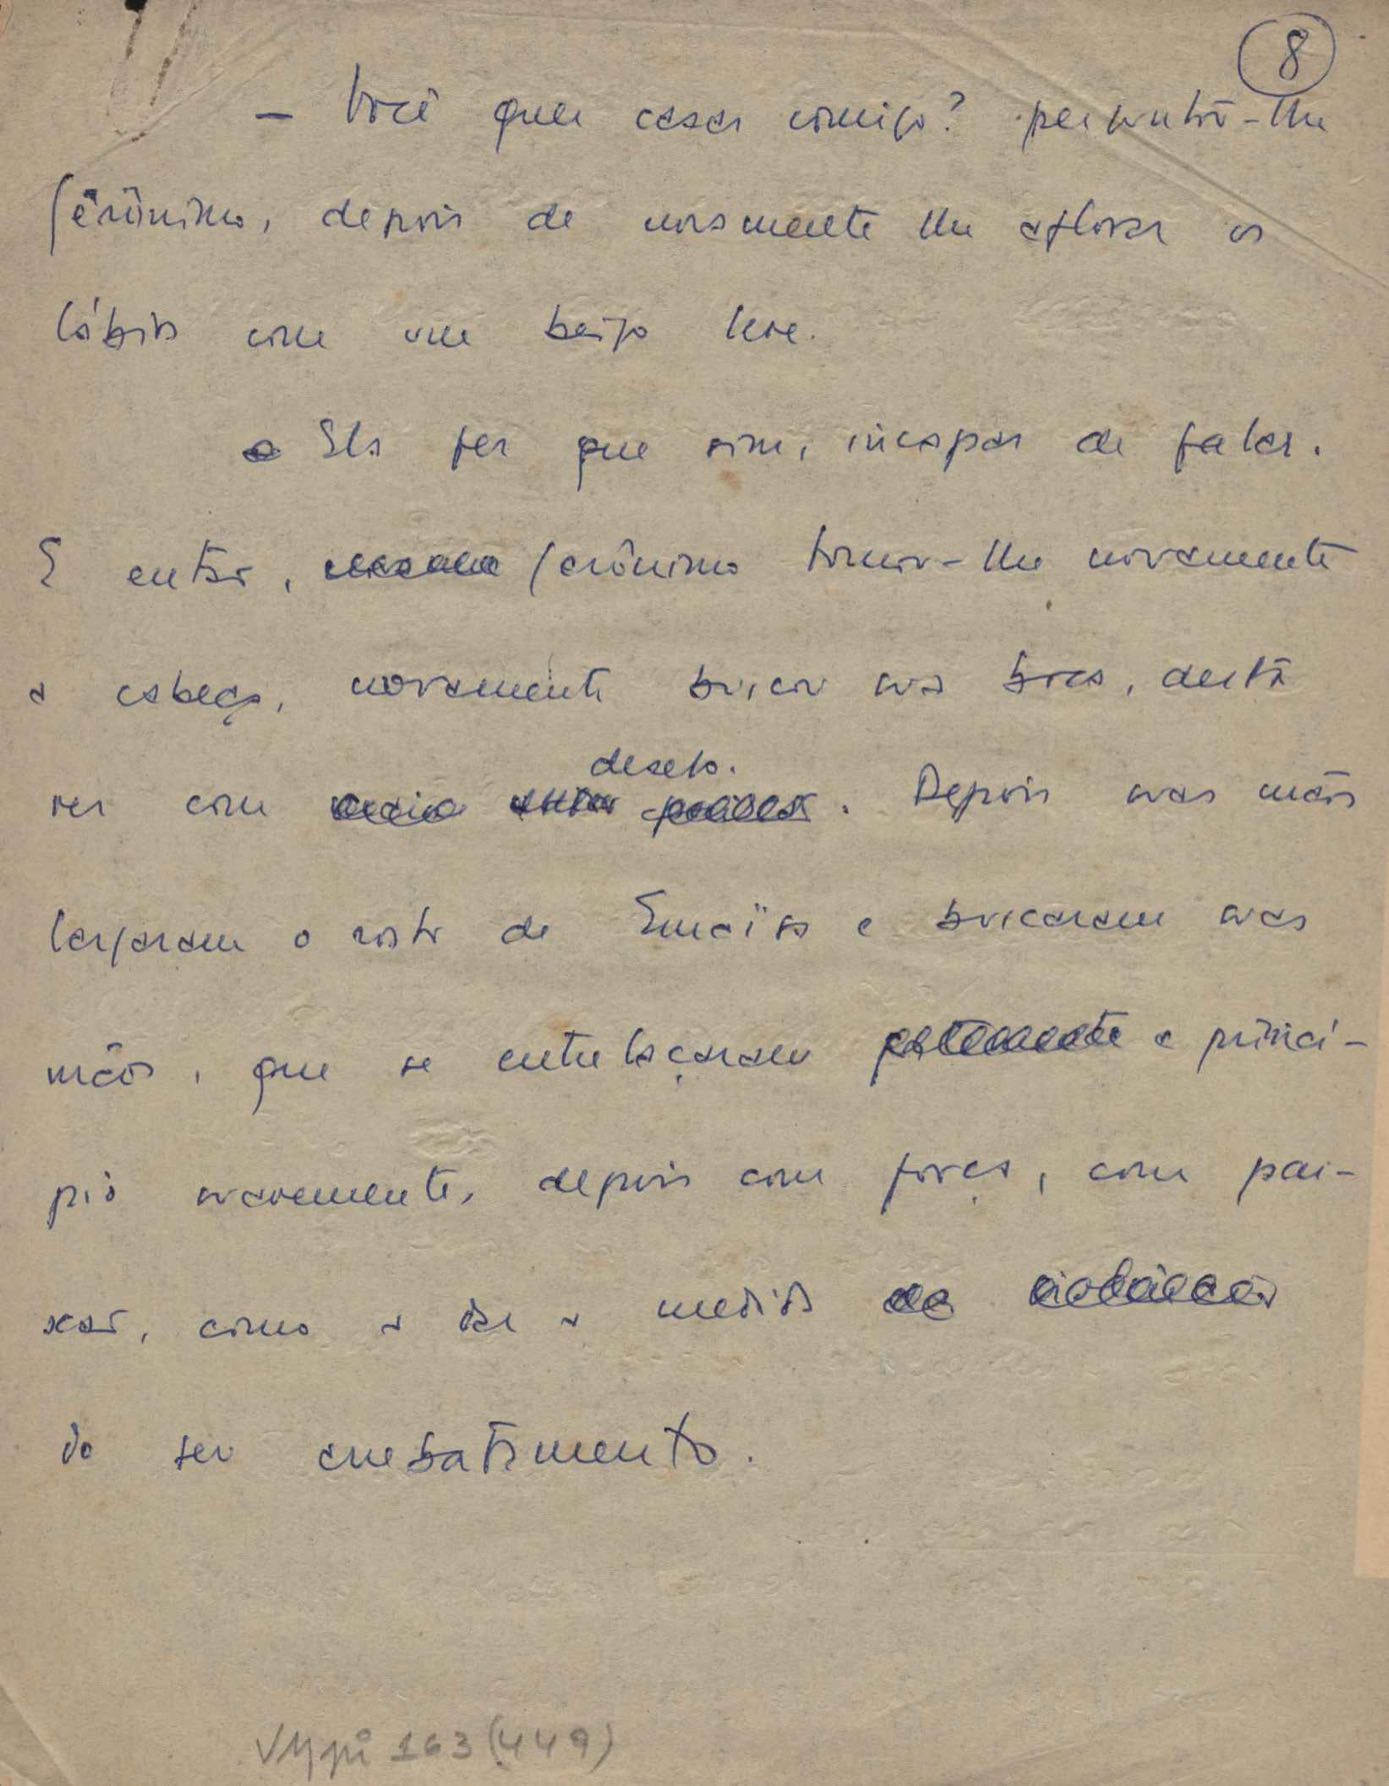 8
– Você quer casar comigo? perguntou-lhe
Jerônimo, depois de novamente lhe aflorar os
lábios com um beijo leve.
Ela fez que sim, incapaz de falar.
E então, Jerônimo tomou-lhe novamente
a cabeça, novamente buscou sua boca, desta
desejo.
vez com . Depois suas mãos
largaram o rosto de e buscaram suas
mãos, que se entrelaçaram a princí-
pio suavemente, depois com força, com pai-
xão, como a dar a medida
do seu embatimento.
163 (449)